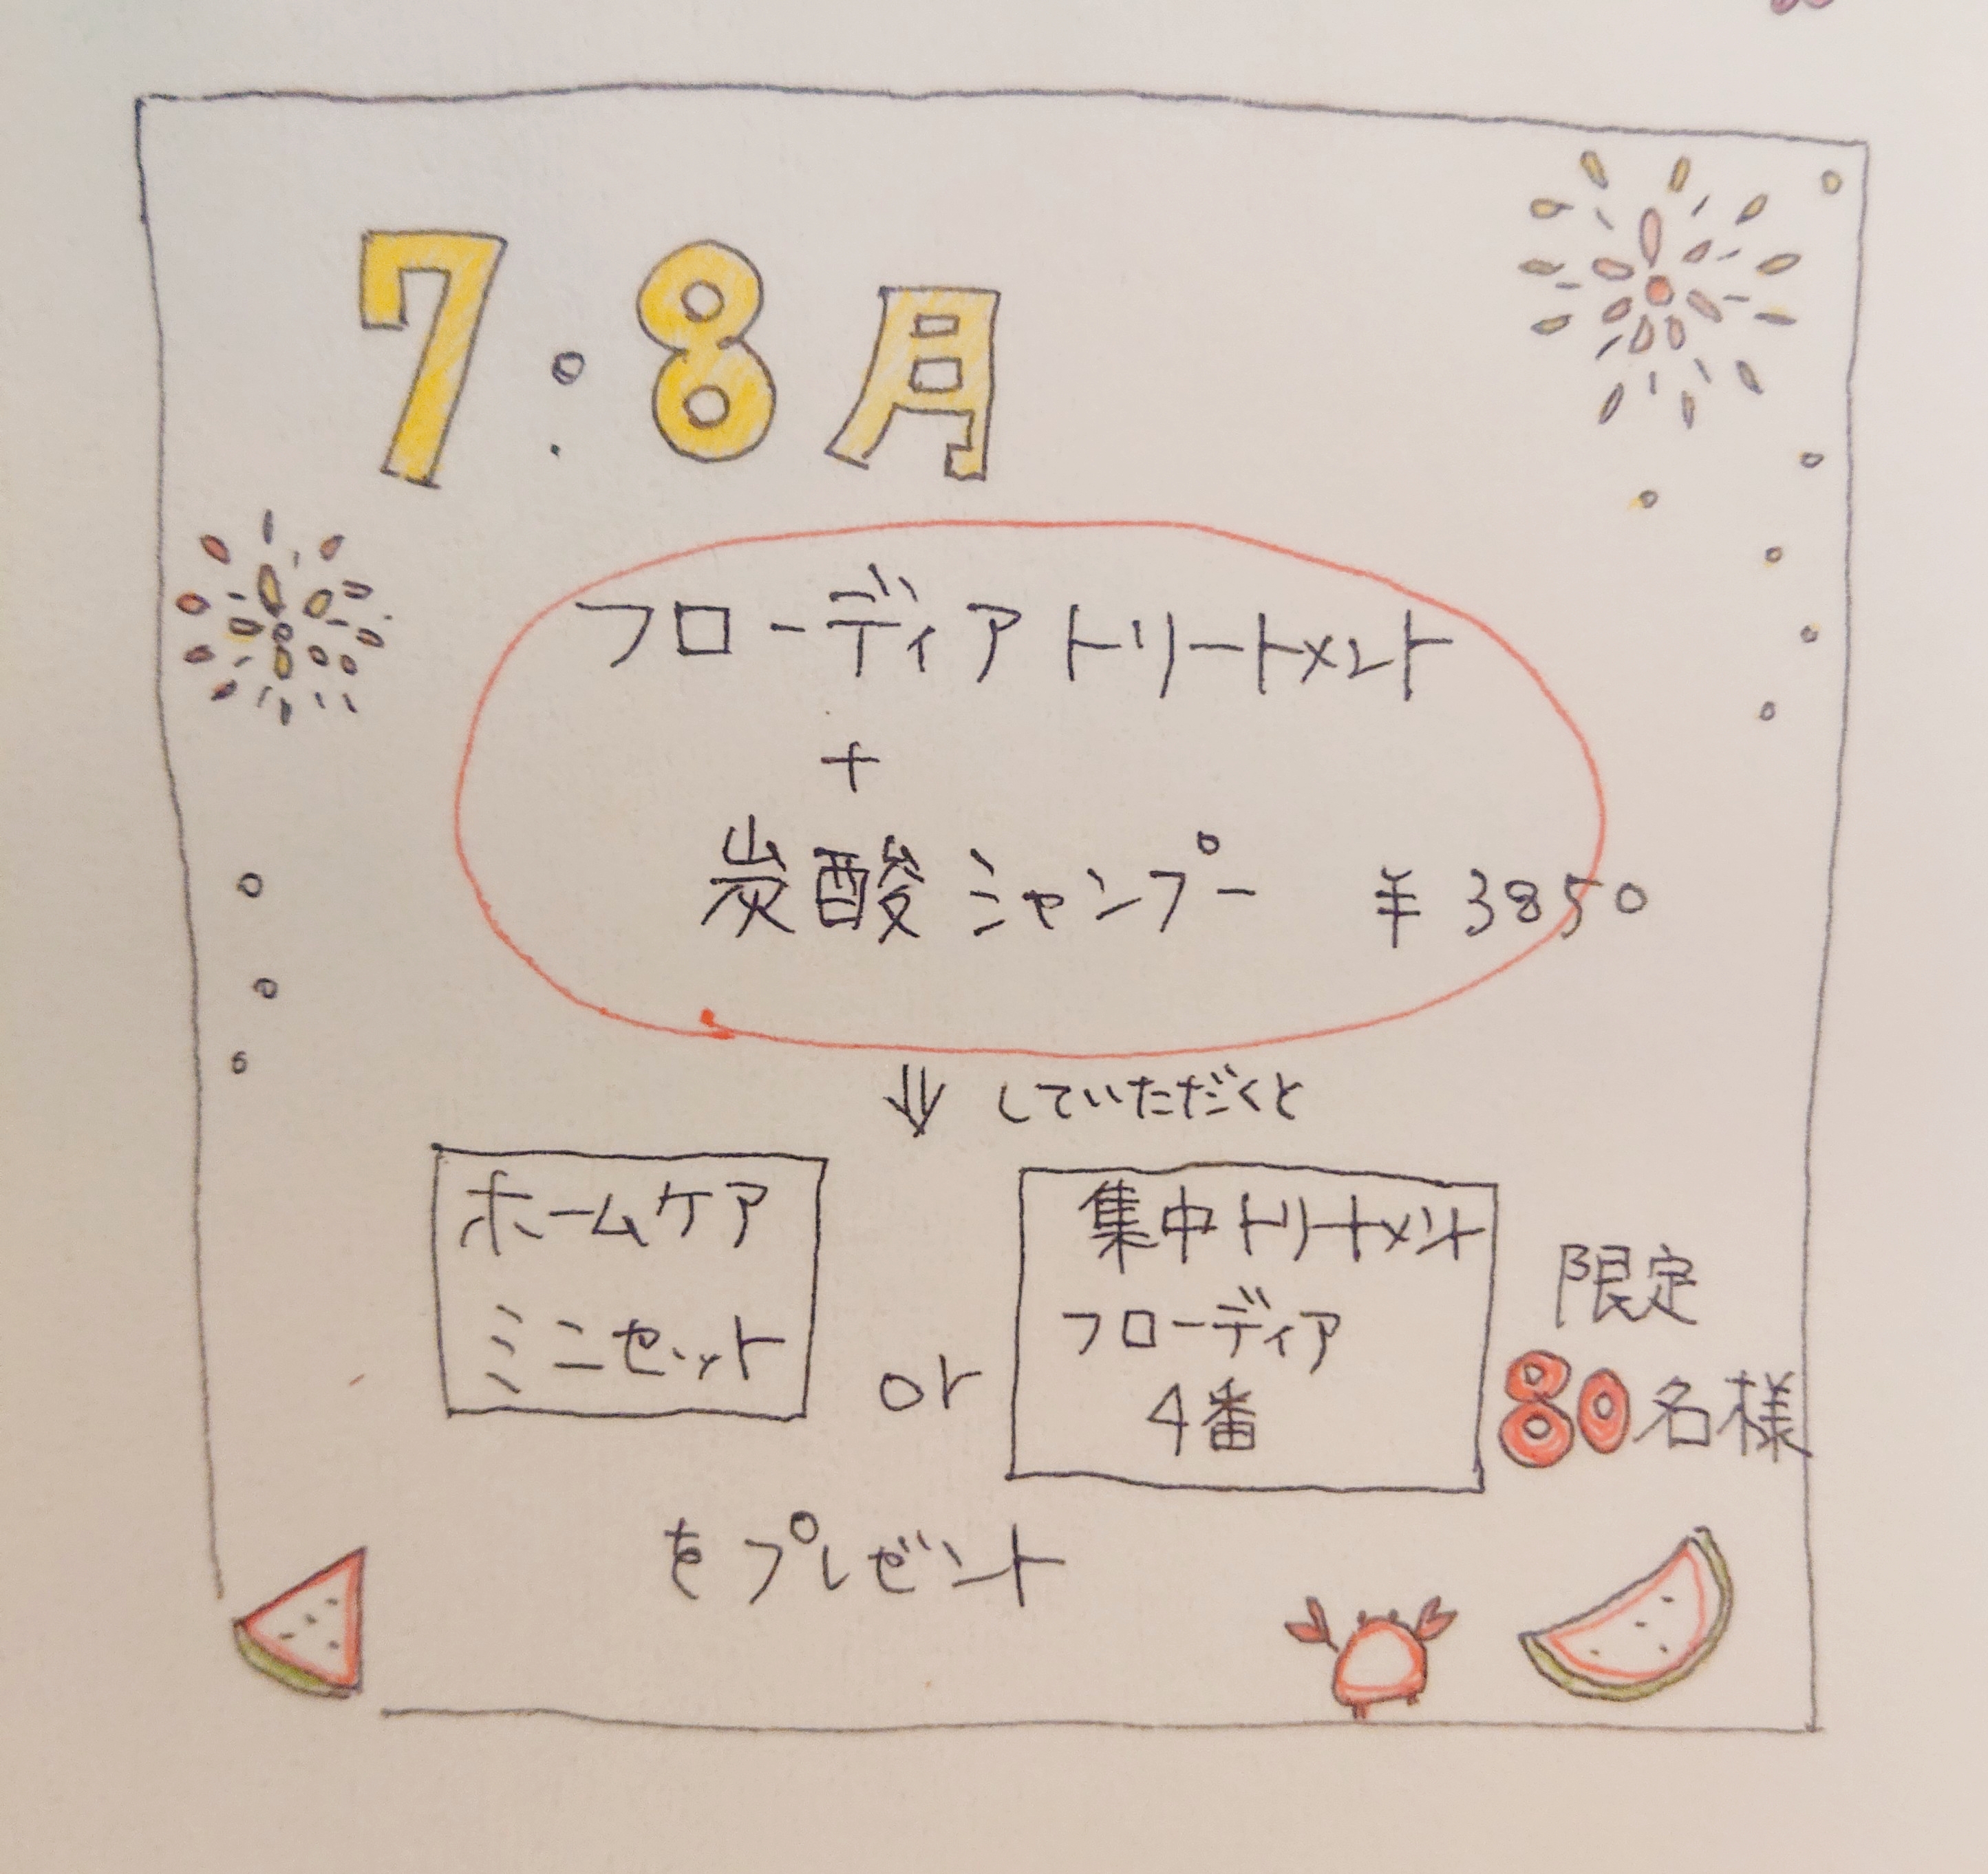 7・8月
フローディアトリートメント
+
炭酸シャンプー ¥3850
⇓ していただくと
ホームケア
ミニセット
or
集中トリートメント
フローディア
4番
限定
80名様
をプレゼント